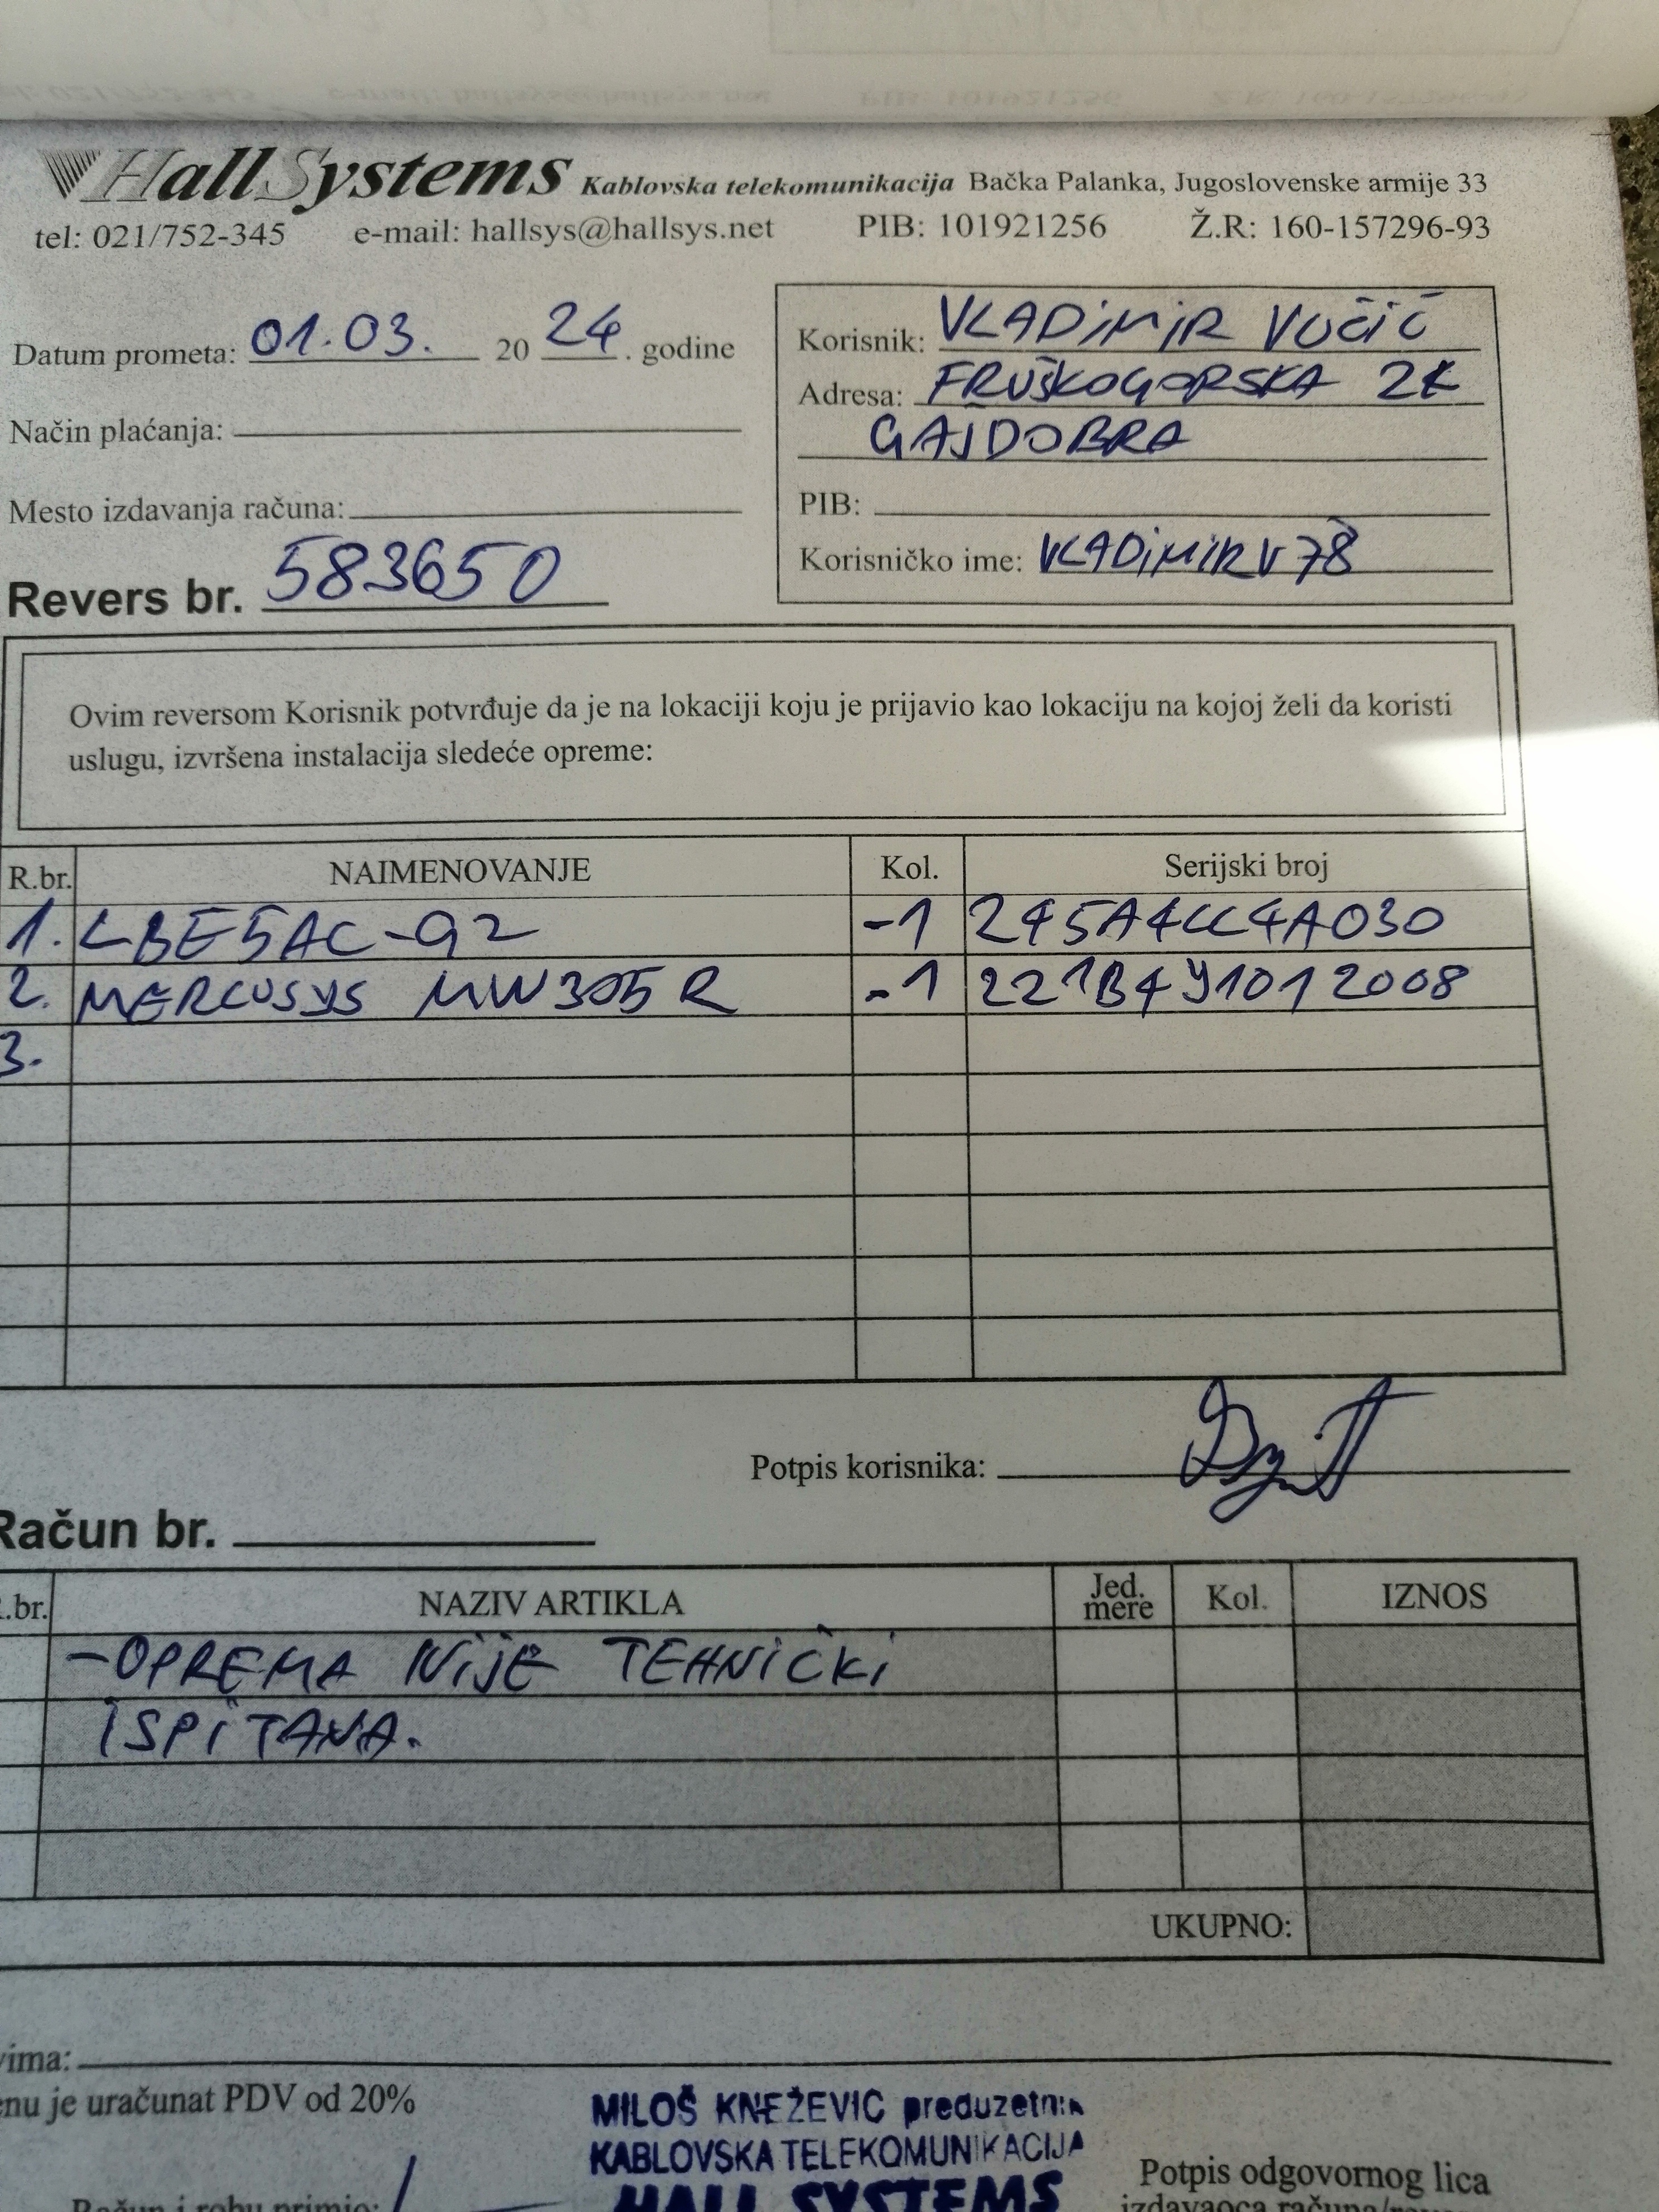 HallSystems Kablovska telekomunikacija Bačka Palanka, Jugoslovenske armije 33
tel: 021/752-345 e-mail: hallsys@hallsys.net PIB: 101921256 Ž.R: 160-157296-93
Datum prometa: 01.03. 20 24. godine
Način plaćanja:
Mesto izdavanja računa:
Revers br. 583650
Korisnik: VLADIMIR VUČIĆ
Adresa: FRUŠKOGORSKA
GAJDOBRA
PIB:
Korisničko ime: VLADIMIRV78
Ovim reversom Korisnik potvrđuje da je na lokaciji koju je prijavio kao lokaciju na kojoj želi da koristi
uslugu, izvršena instalacija sledeće opreme:
R.br. NAIMENOVANJE Kol. Serijski broj
1. LBE5AC-G2 -1 245A4CC4A030
2. MERCUSYS MW305R -1 221B4Y1012008
3.
Potpis korisnika:
Račun br.
.br. NAZIV ARTIKLA Jed. mere Kol. IZNOS
-OPREMA NIJE TEHNIČKI
ISPITANA.
UKUPNO:
vima:
enu je uračunat PDV od 20%
MILOŠ KNEŽEVIĆ preduzetnik
KABLOVSKA TELEKOMUNIKACIJA
HALL SYSTEMS
Potpis odgovornog lica
Račun i robu primio:
izdavaoca računa/